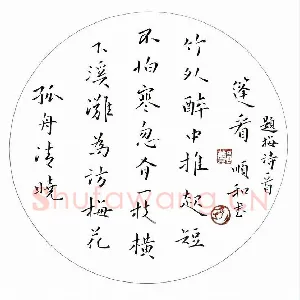 孤舟清晓
下溪滩为访梅花
不怕寒忽有一枝横
竹外醉中推起短
篷看 顺和书
题梅诗一首
Shufawang.CN